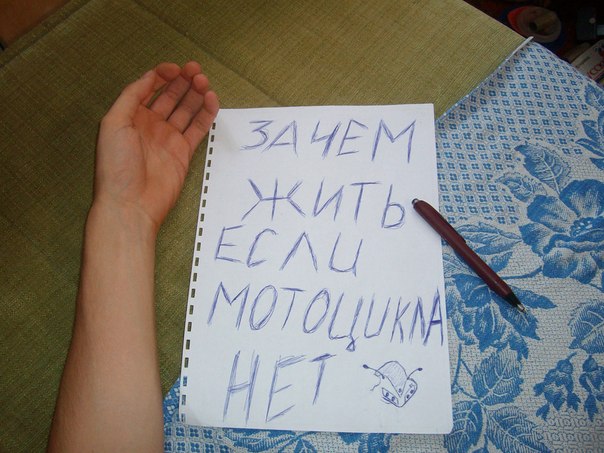 ЗАЧЕМ
ЖИТЬ
ЕСЛИ
МОТОЦИКЛА
НЕТ